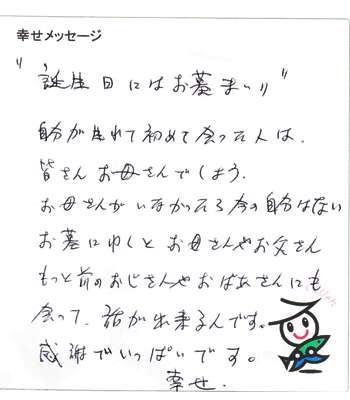 幸せメッセージ
"誕生日にはお墓まいり"
自分が生れて初めて会った人は、
皆さんお母さんでしょう。
お母さんがいなかったら今の自分はない
お墓にゆくとお母さんやお父さん
もっと前のおじさんやおばあさんにも
会って、話が出来るんです。
感謝でいっぱいです。
幸せ.